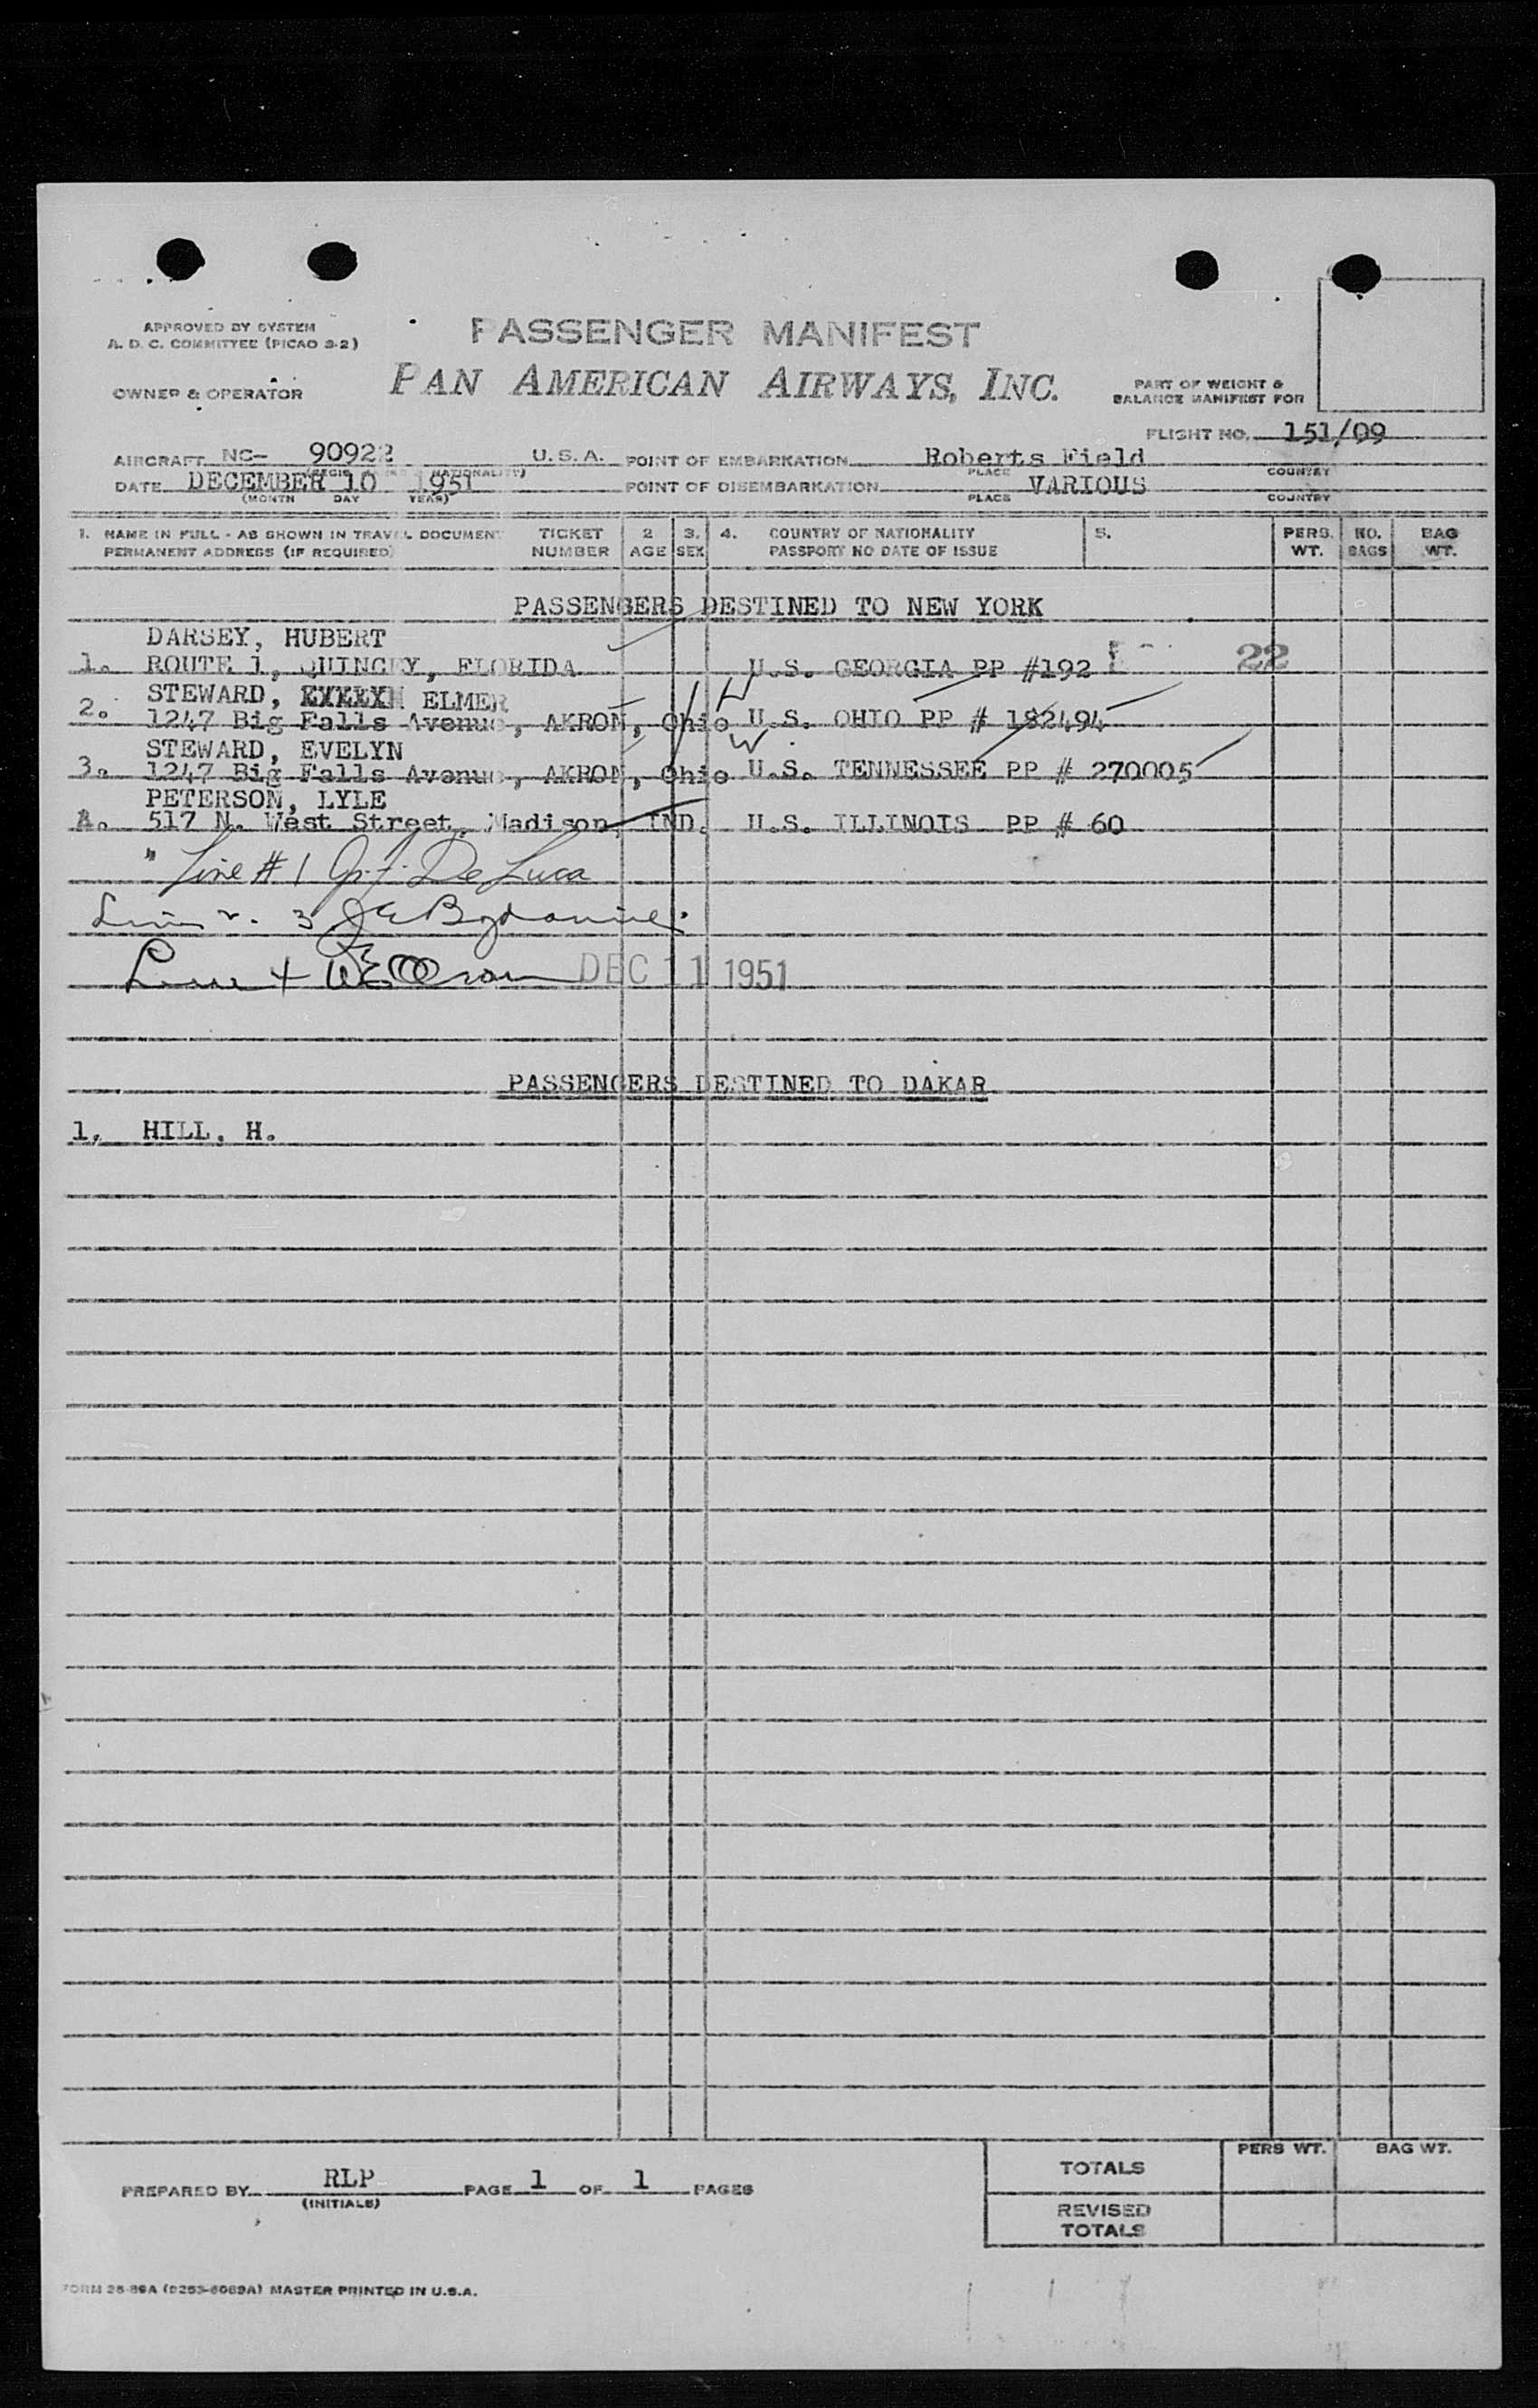 APPROVED BY SYSTEM
A. D. C. COMMITTEE (PICAO 3-2)
PASSENGER MANIFEST
OWNER & OPERATOR
PAN AMERICAN AIRWAYS, INC.
PART OF WEIGHT &
BALANCE MANIFEST FOR
FLIGHT NO. 151/09
AIRCRAFT NC- 90922 U.S.A. POINT OF EMBARKATION Roberts Field
PLACE COUNTRY
DATE DECEMBER 10 1951 POINT OF DISEMBARKATION VARIOUS
(MONTH DAY YEAR) PLACE COUNTRY
1. NAME IN FULL - AS SHOWN IN TRAVEL DOCUMENT TICKET 2 3. 4. COUNTRY OF NATIONALITY 5. PERS. NO. BAG
PERMANENT ADDRESS (IF REQUIRED) NUMBER AGE SEX PASSPORT NO DATE OF ISSUE WT. BAGS WT.
PASSENGERS DESTINED TO NEW YORK
DARSEY, HUBERT
1. ROUTE 1, QUINCEY, FLORIDA U.S. GEORGIA PP #192 22
STEWARD, ELMER
2. 1247 Big Falls Avenue, AKRON, Ohio U.S. OHIO PP # 182494
W
STEWARD, EVELYN
3. 1247 Big Falls Avenue, AKRON, Ohio U.S. TENNESSEE PP # 270005
W
PETERSON, LYLE
517 N. West Street, Madison, IND. U.S. ILLINOIS PP # 60
" Line # 1 De Luca
3
DEC 11 1951
PASSENGERS DESTINED TO DAKAR
1. HILL, H.
PREPARED BY RLP PAGE 1 OF 1 PAGES
(INITIALS)
PERS WT. BAG WT.
TOTALS
REVISED
TOTALS
MASTER PRINTED IN U.S.A.